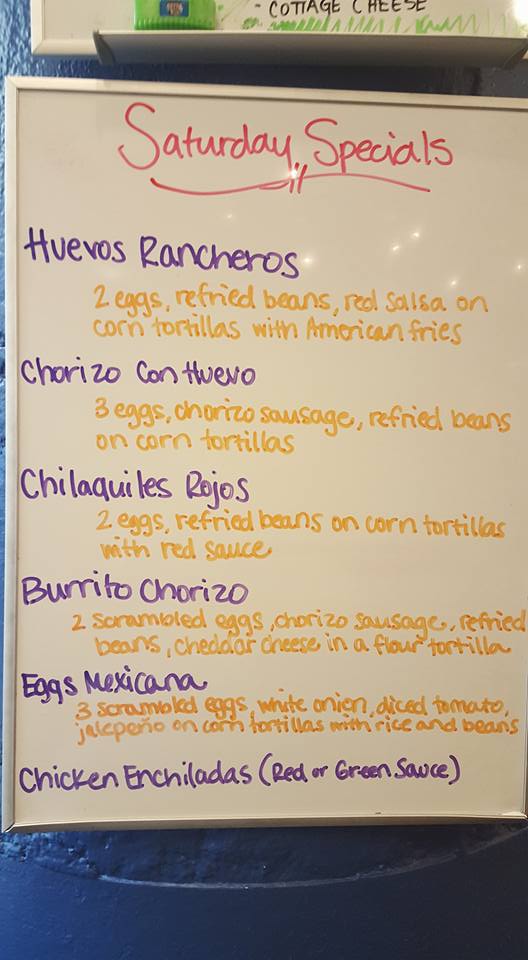 - COTTAGE CHEESE
Saturday Specials
Huevos Rancheros
2 eggs, refried beans, red salsa on
corn tortillas with American fries
Chorizo Con Huevo
3 eggs, chorizo sausage, refried beans
on corn tortillas
Chilaquiles Rojos
2 eggs, refried beans on corn tortillas
with red sauce
Burrito Chorizo
2 scrambled eggs, chorizo sausage, refried
beans, cheddar cheese in a flour tortilla
Eggs Mexicana
3 scrambled eggs, white onion, diced tomato,
jalepeño on corn tortillas with rice and beans
Chicken Enchiladas (Red or Green Sauce)